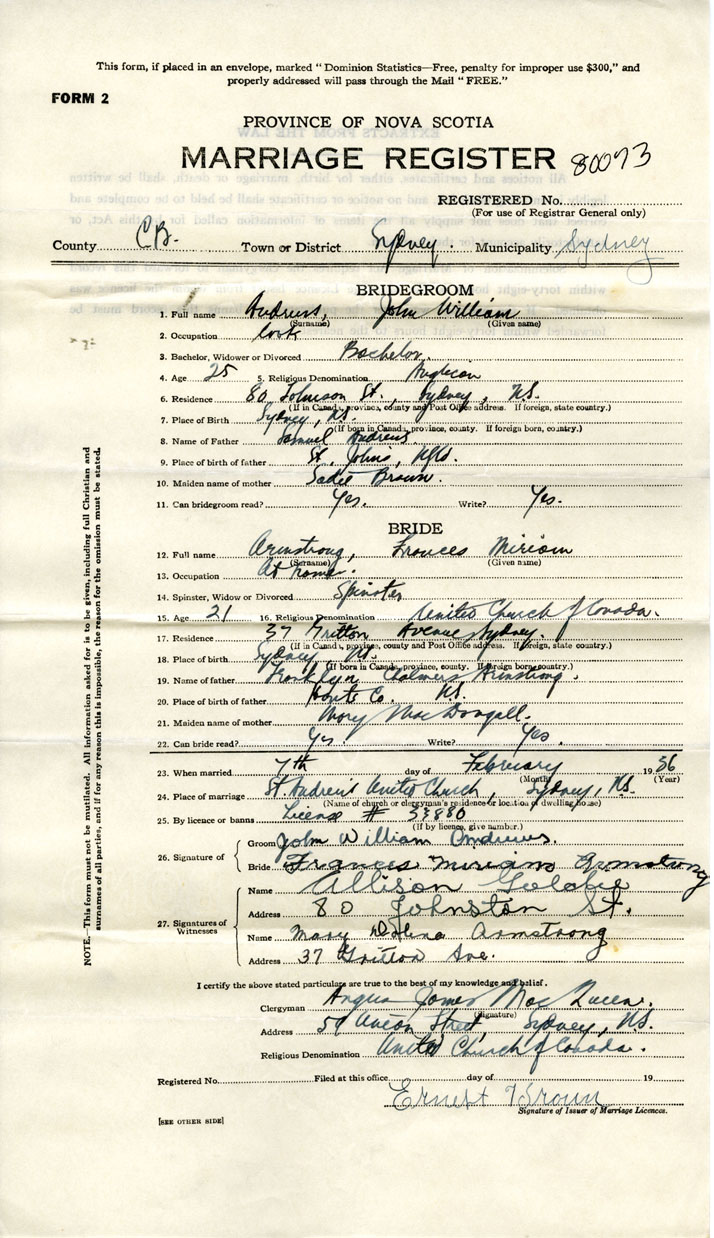 This form, if placed in an envelope, marked "Dominion Statistics—Free, penalty for improper use $300," and
properly addressed will pass through the Mail "FREE."
FORM 2
PROVINCE OF NOVA SCOTIA
MARRIAGE REGISTER 80073
REGISTERED No.
(For use of Registrar General only)
County C.B. Town or District Sydney. Municipality Sydney
BRIDEGROOM
1. Full name Andrews, John William
(Surname) (Given name)
2. Occupation Cook
3. Bachelor, Widower or Divorced Bachelor.
4. Age 25 5. Religious Denomination Anglican
6. Residence 80 Johnson St., Sydney, N.S.
(If in Canada, province, county and Post Office address. If foreign, state country.)
7. Place of Birth Sydney, N.S.
(If born in Canada, province, county. If foreign born, country.)
8. Name of Father Samuel Andrews
9. Place of birth of father St. Johns, Nfld.
10. Maiden name of mother Sadie Brown.
11. Can bridegroom read? Yes. Write? Yes.
BRIDE
12. Full name Armstrong, Frances Miriam
(Surname) (Given name)
13. Occupation At home.
14. Spinster, Widow or Divorced Spinster
15. Age 21 16. Religious Denomination United Church of Canada.
17. Residence 37 Gritton Avenue, Sydney.
(If in Canada, province, county and Post Office address. If foreign, state country.)
18. Place of birth Sydney N.S.
(If born in Canada, province, county. If foreign born, country.)
19. Name of father Franklyn Chalmers Armstrong.
20. Place of birth of father Co. N.S.
21. Maiden name of mother Mary MacDougall.
22. Can bride read? Yes. Write? Yes.
23. When married 7th day of February 1956
(Month) (Year)
24. Place of marriage St. Andrew's United Church, Sydney, N.S.
(Name of church or clergyman's residence or location of dwelling house)
25. By licence or banns License # 33880
(If by licence, give number.)
26. Signature of
Groom John William Andrews.
Bride Frances Miriam Armstrong
27. Signatures of Witnesses
Name Allison Goldie
Address 80 Johnston St.
Name Mary Armstrong
Address 37 Gritton Ave.
I certify the above stated particulars are true to the best of my knowledge and belief.
Clergyman Angus James MacQueen.
(Signature)
Address 59 Street, Sydney, N.S.
Religious Denomination United Church of Canada.
Registered No. Filed at this office day of 19
Ernest Brown
Signature of Issuer of Marriage Licences.
[SEE OTHER SIDE]
NOTE.—This form must not be mutilated. All information asked for is to be given, including full Christian and
surnames of all parties, and if for any reason this is impossible, the reason for the omission must be stated.